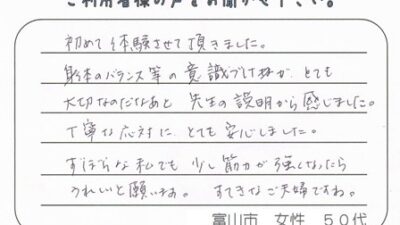 ご利用者様の声をお聞かせ下さい。
初めて体験させて頂きました。
身体のバランス等の意識づけが、とても
大切なのだなあと 先生の説明から感じました。
丁寧な応対に、とても安心しました。
ずぼらな私でも 少し筋力が強くなったら
うれしいと願います。 すてきなご夫婦ですね。
富山市 女性 50代